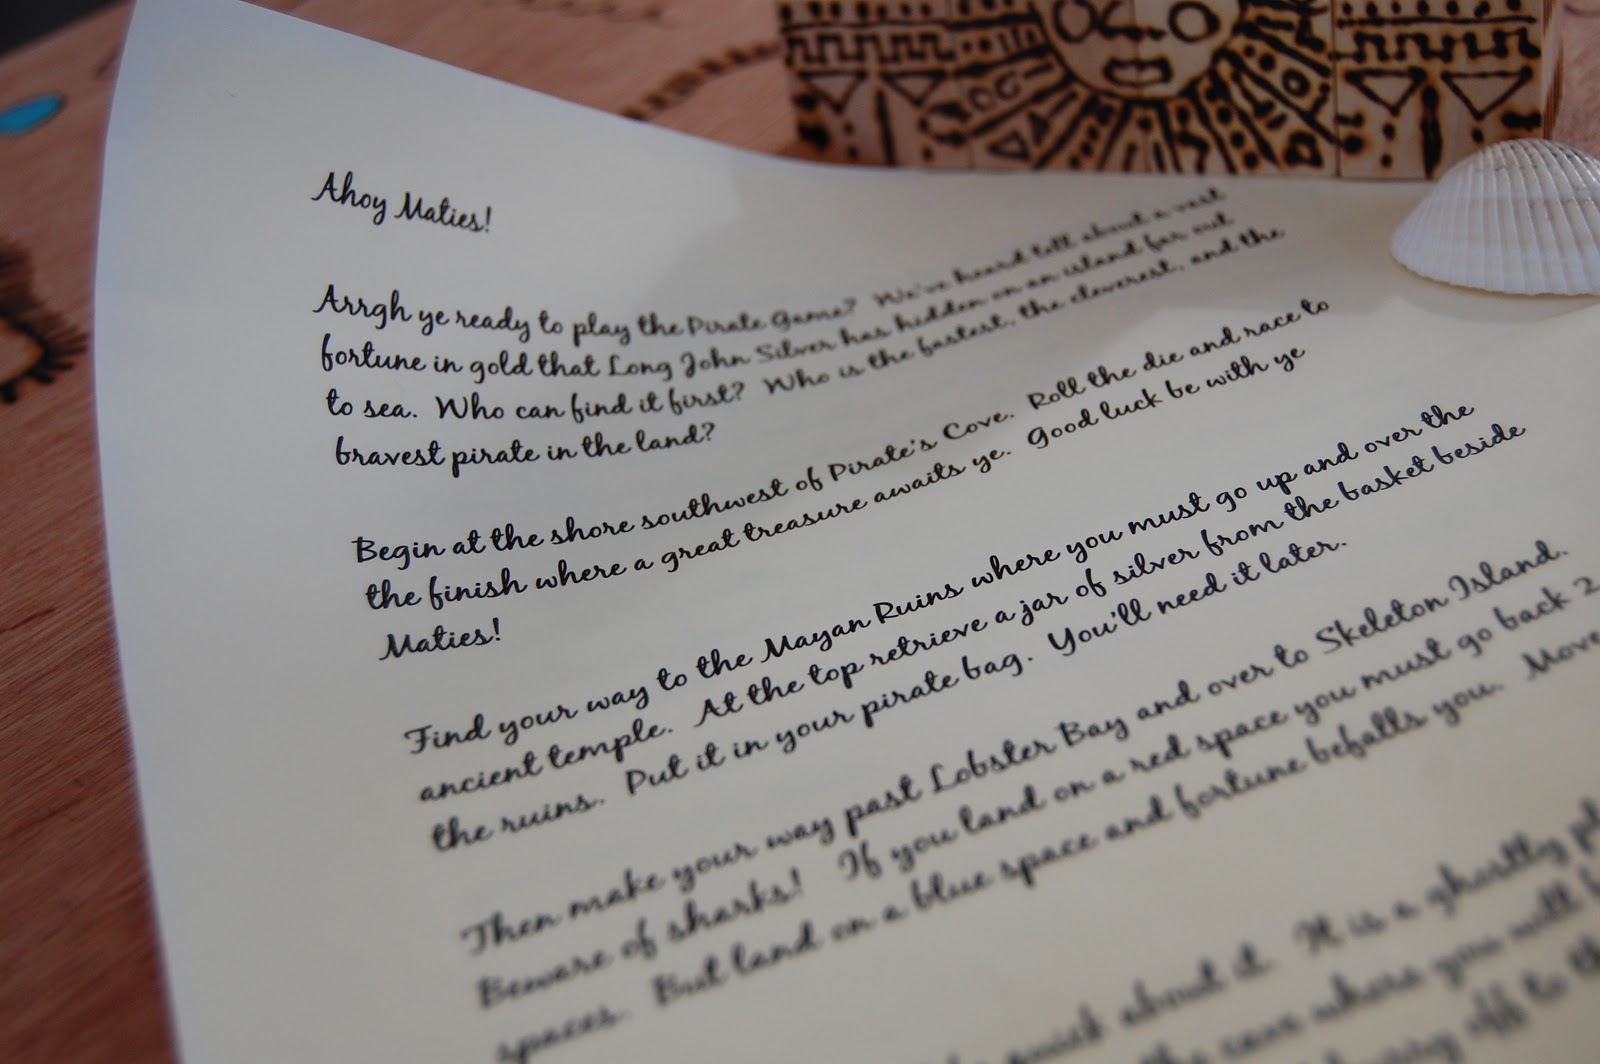 Ahoy Maties!
Arrgh ye ready to play the Pirate Game? We've heard tell about a vast
fortune in gold that Long John Silver has hidden on an island far out
to sea. Who can find it first? Who is the fastest, the cleverest, and the
bravest pirate in the land?
Begin at the shore southwest of Pirate's Cove. Roll the die and race to
the finish where a great treasure awaits ye. Good luck be with ye
Maties!
Find your way to the Mayan Ruins where you must go up and over the
ancient temple. At the top retrieve a jar of silver from the basket beside
the ruins. Put it in your pirate bag. You'll need it later.
Then make your way past Lobster Bay and over to Skeleton Island.
Beware of sharks! If you land on a red space you must go back 2
spaces. But land on a blue space and fortune befalls you. Move
quick about it. It is a ghostly
the cave where you will
off to